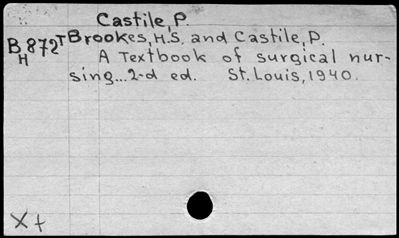 Castile, P.
B872T Brookes, H.S. and Castile, P.
H
A Textbook of surgical nur-
sing... 2-d ed. St. Louis, 1940.
X+